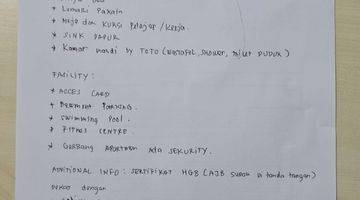 * Lemari Pakain
* Meja dan KURSI Pelajar / Kerja.
* SINK DAPUR
* Kamar mandi by TOTO (WASTAFEL, SHOWER, TOILET DUDUK)
FACILITY:
* ACCES CARD
* BASEMENT PARKING.
* SWIMMING POOL.
* FITNES CENTRE.
* Gerbang APARTMEN Ada SEKURITY.
ADDITIONAL INFO: SERTIFIKAT HGB (AJB SUDAH di tanda tangan)
Dekat dengan